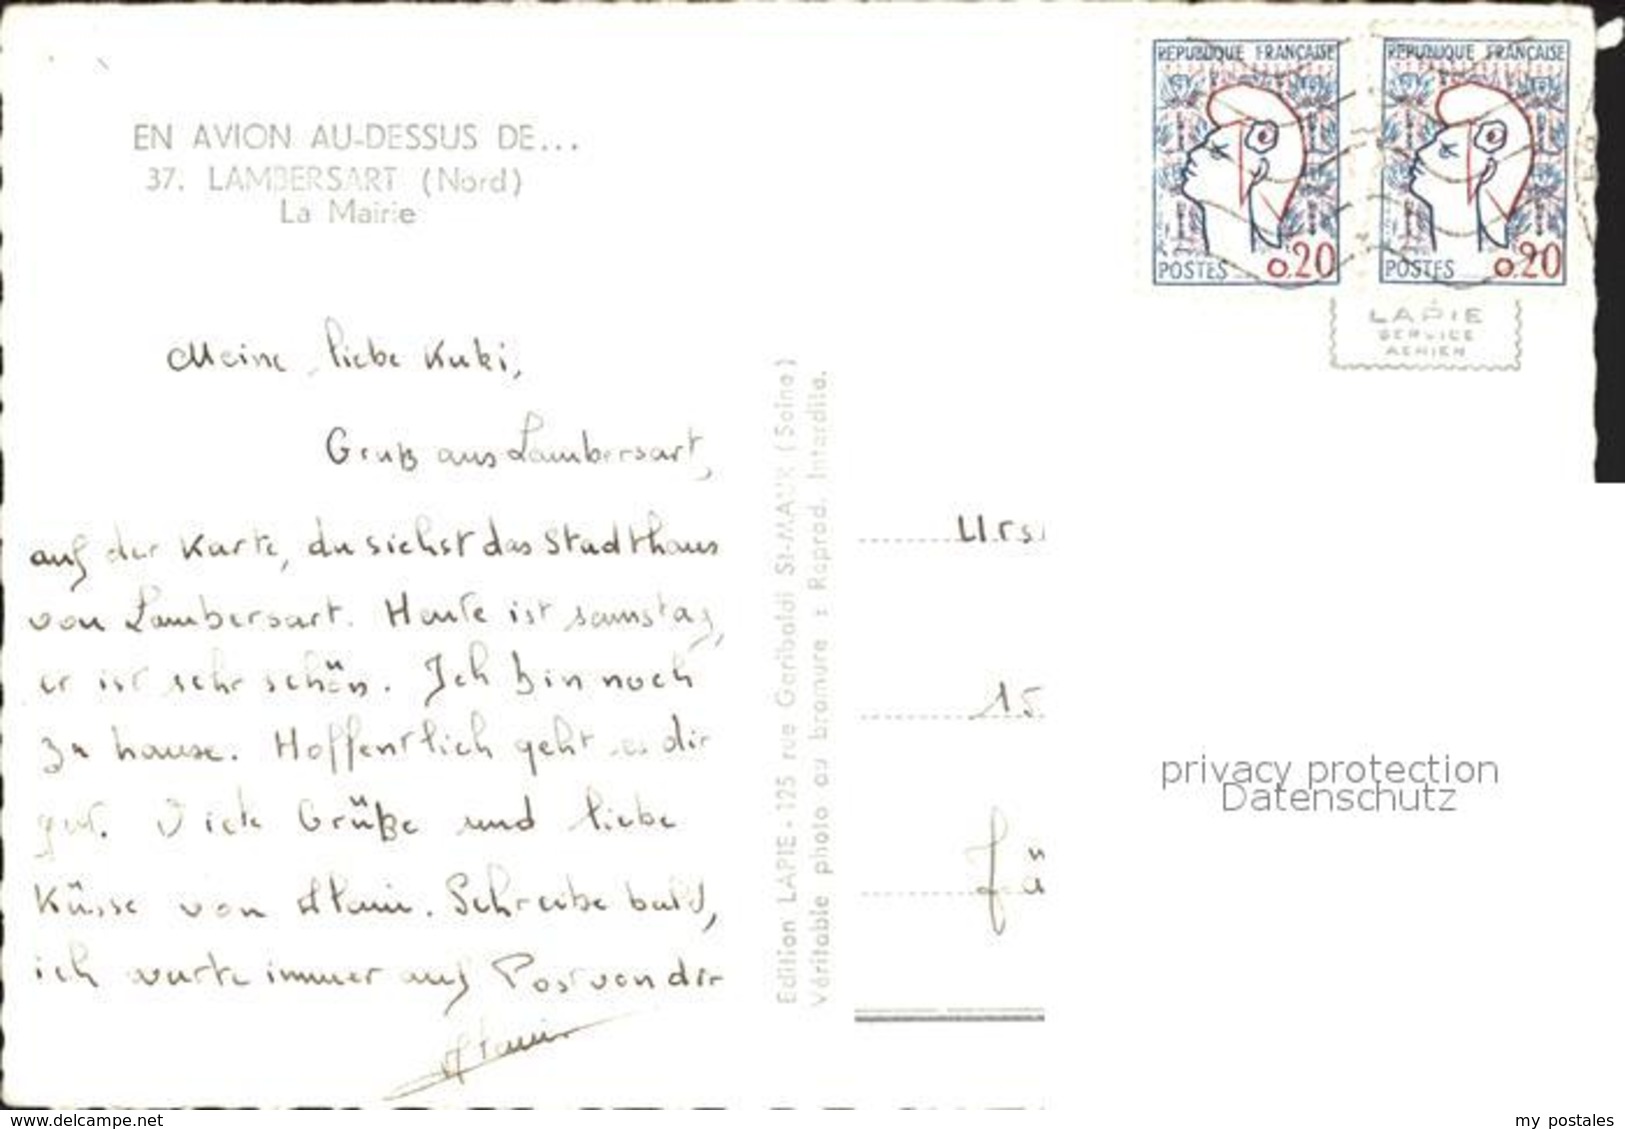 EN AVION AU-DESSUS DE...
37. LAMBERSART (Nord)
La Mairie
Meine liebe Kuki,
Gruß aus Lambersart,
auf der Karte, du siehst das Stadthaus
von Lambersart. Heute ist samstag,
er ist sehr schön. Ich bin noch
zu hause. Hoffentlich geht es dir
gut. Viele Grüße und liebe
Küsse von Alain. Schreibe bald,
ich warte immer auf Post von dir
Alain
Edition LAPIE - 125 rue Garibaldi ST-MAUR (Seine)
Véritable photo au bromure : Reprod. Interdite.
REPUBLIQUE FRANÇAISE
POSTES 0.20
REPUBLIQUE FRANÇAISE
POSTES 0.20
LAPIE
SERVICE
AERIEN
Urs
15
fü
privacy protection
Datenschutz
www.delcampe.net
my postales